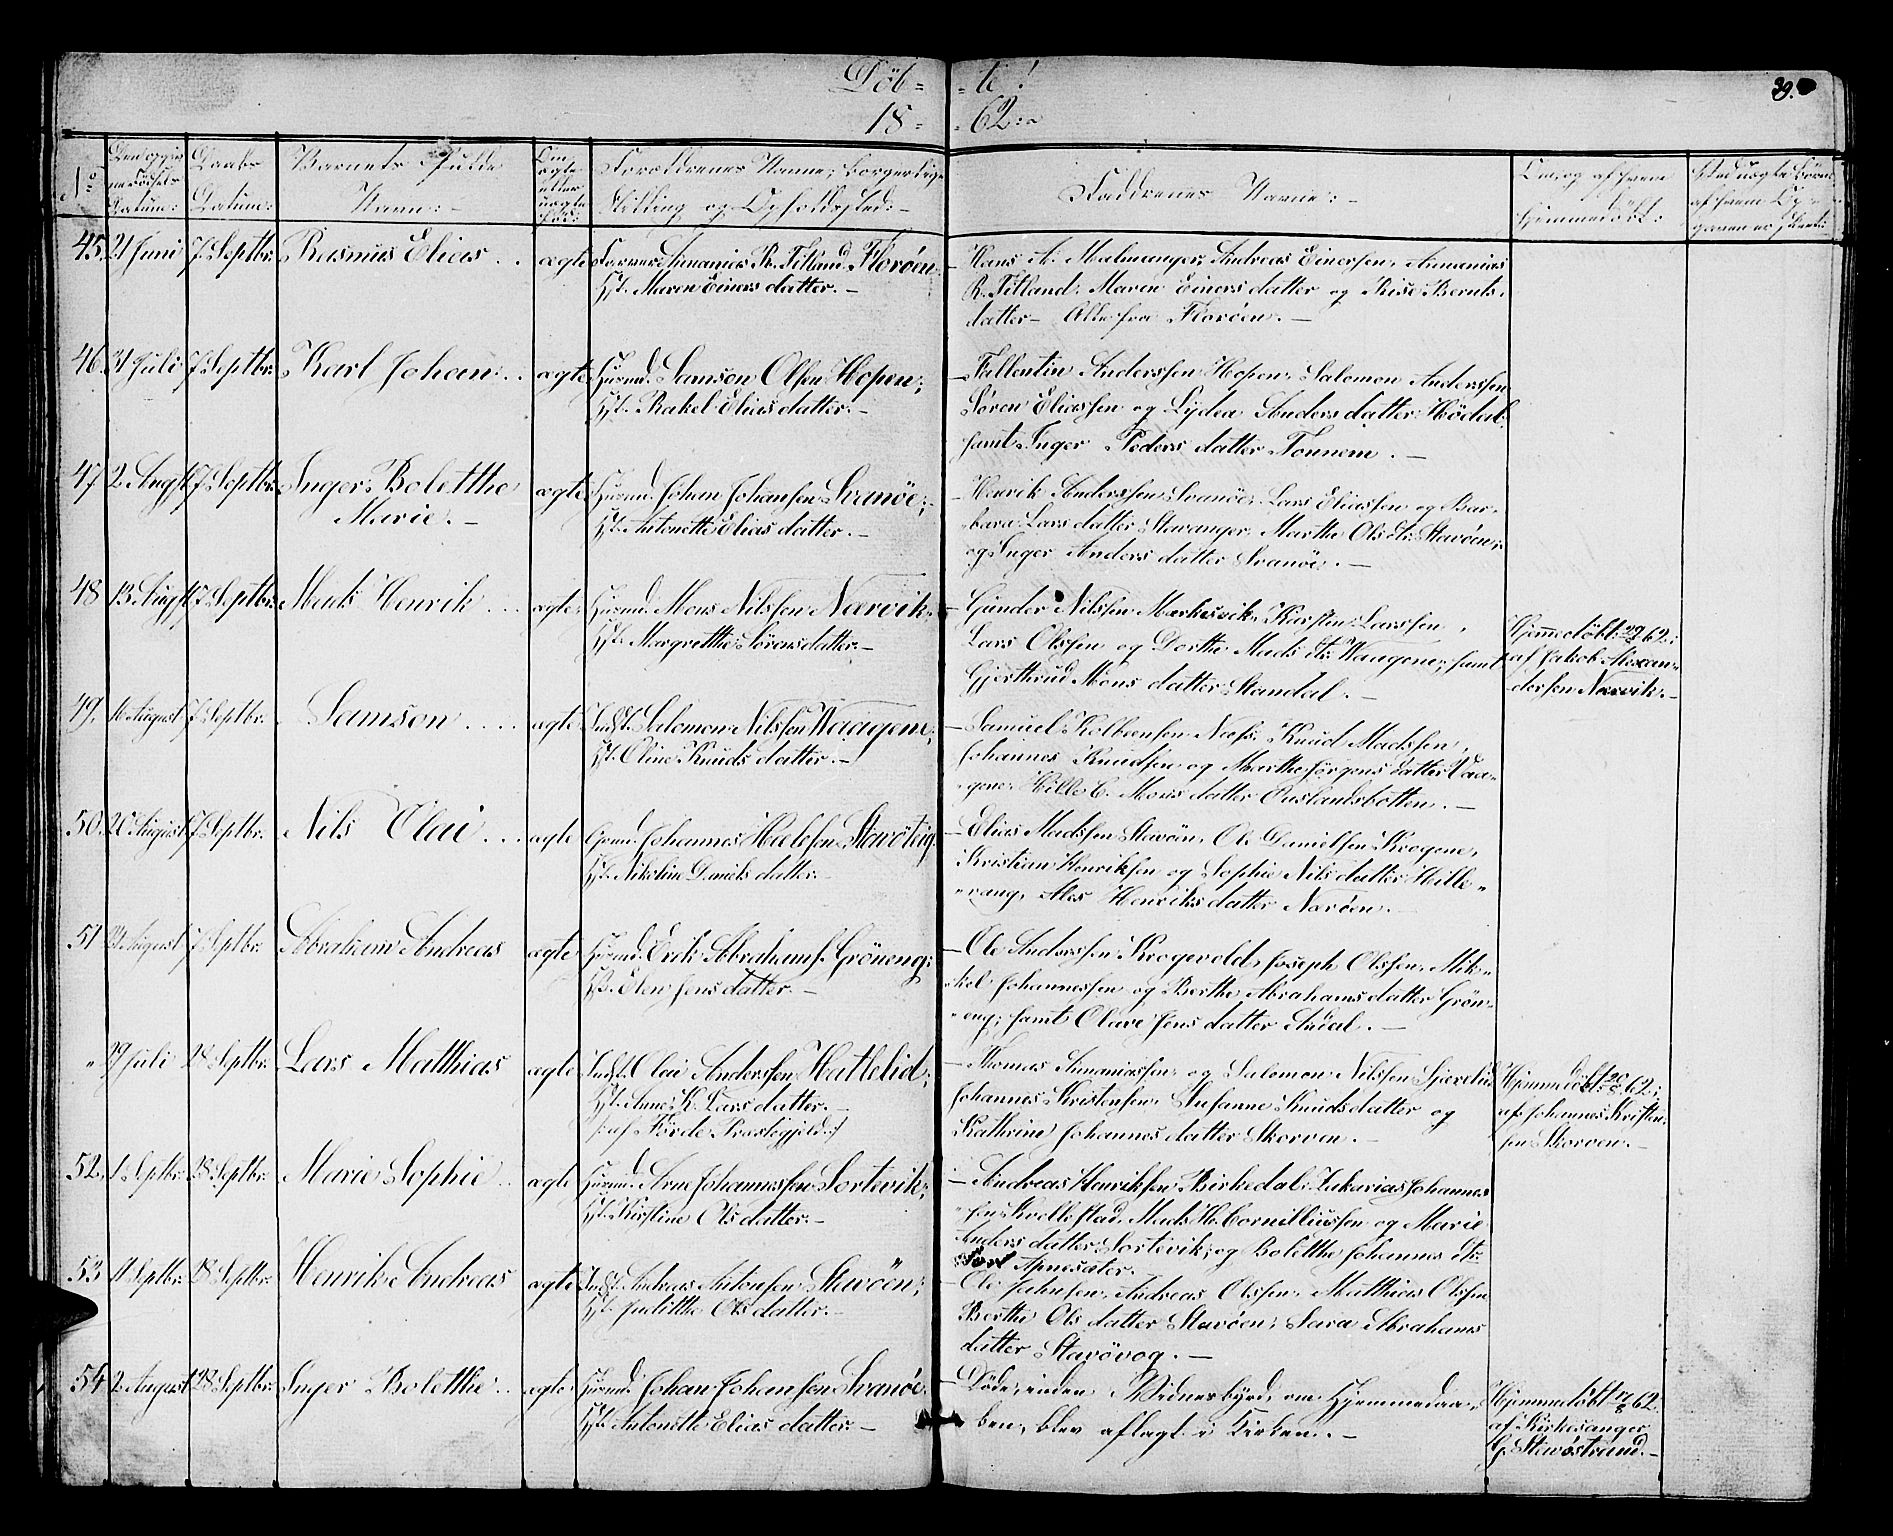 Döb= =te!
18= =62:
39.
No
Daabs
Barnets fulde
Forældrenes Navne, borgerlige
Datum:
Datum:
Navn:-
Stilling og Opholdssted:-
Faddrenes Navne:-
Hjemmedöbt:
45. 21 Juni 7. Septbr. Rasmus Elias .. ægte Ananias R. Tilland Floröen
Hst. Maren Einersdatter.-
Hans A. Malmanger, Andreas Einersen, Ananias
R. Tilland, Maren Einersdatter og Bernts-
datter- Alle fra Floröen.-
46. 31 Juli 7. Septbr. Karl Johan ... ægte Huusmd. Samson Olsen Hopen;
Hst. Rakel Eliasdatter.-
Anderssen Hopen, Salomon Anderssen
Sören Eliassen og Lydea Andersdatter Hödal,
samt Inger Pedersdatter Tonnem.-
47 2 Augst. 7 Septbr. Inger Bolethe
Marie.-
ægte Huusmd. Johan Johansen Svanöe;
Hst. Antonette Eliasdatter.-
Henrik Anderssen Svanöe, Lars Eliassen og Bar-
bara Larsdatter Stavanger, Marthe Olsdtr. Stavöen;
og Inger Andersdatter Svanöe.-
48 13 Augst. 7 Septbr. Mads Henrik ... ægte Huusmd. Mons Nilssen Nærvik
Hst. Margrethe Sörensdatter.-
Gunder Nilssen Markesvik, Karsten Larssen,
Lars Olssen og Dorthe Madsdtr. Waagene, samt
Gjerthrud Monsdatter Standal.-
Hjemmedöbt 62
af Jakob Alexan-
dersen Nærvik.-
49. 16 August 7. Septbr. Samson .... ægte Indst. Salomon Nilssen Waagene;
Hst. Oline Knudsdatter.-
Samuel Kolbeensen Næss, Knud Madssen,
Johannes Knudsen og Marthe Jörgensdatter Vaa-
gene, Hille C. Monsdatter Ouslandsbotten.-
50. 20 August 7 Septbr. Nils Olai ... ægte Gmd. Johannes Stavöteig
Hst. Nikoline Danielsdatter.-
Elias Madssen Stavöen, Ole Danielsen Krogene,
Kristian Henriksen og Sophie Nilsdatter Hille-
vang, Ales Henriksdatter Næröen.-
51 31 August 7 Septbr. Abraham Andreas ægte Huusmd. Erik Abrahams. Gröneng;
Hst. Elen Jensdatter.-
Ole Anderssen Krogevold, Joseph Olssen, Mik-
kel Johannessen og Berthe Abrahamsdatter Grön-
eng; samt Olave Jensdatter Aröal.-
" 29 Juli 28 Septbr. Lars Matthias ægte Indst. Olai Anderssen Hatlelid,
Hst. Anne K. Larsdatter.-
/: af Förde Præstegjeld :/
Thomas Ananiassen og Salomon Nilssen
Johannes Kristensen, Susanne Knudsdatter og
Kathrine Johannesdatter Skorven.-
Hjemmedöbt 62;
af Johannes Kristen-
sen Skorven.-
52. 1. Septbr. 28 Septbr. Marie Sophie .. ægte Huusmd. Arne Johannessen Sortevik;
Hst. Kirstine Olsdatter.-
Andreas Henriksen Birkedal, Zakarias Johannes
sen Kvellestad, Mads H. Cornilliussen og Marie
Andersdatter Sortevik; og Bolethe Johannesdtr.
Apnesæter.-
53 11 Septbr. 28 Septbr. Henrik Andreas ægte Indst. Andreas Antonsen Stavöen;
Hst. Judithe Olsdatter.-
Ole Johnsen, Andreas Olssen, Matthias Olssen
Berthe Olsdatter Stavöen; Sara Abrahams
datter Stavövog.-
54 2. August 28 Septbr. Inger Bolethe .. ægte Huusmd. Johan Johansen Svanöe
Hst. Antonette Eliasdatter.-
Döde, inden Vidnesbyrd om Hjemmedaa-
ben, blev aflagt i Kirken.-
Hjemmedöbt 62.
af Kirkesanger
G. Stavöstrand.-